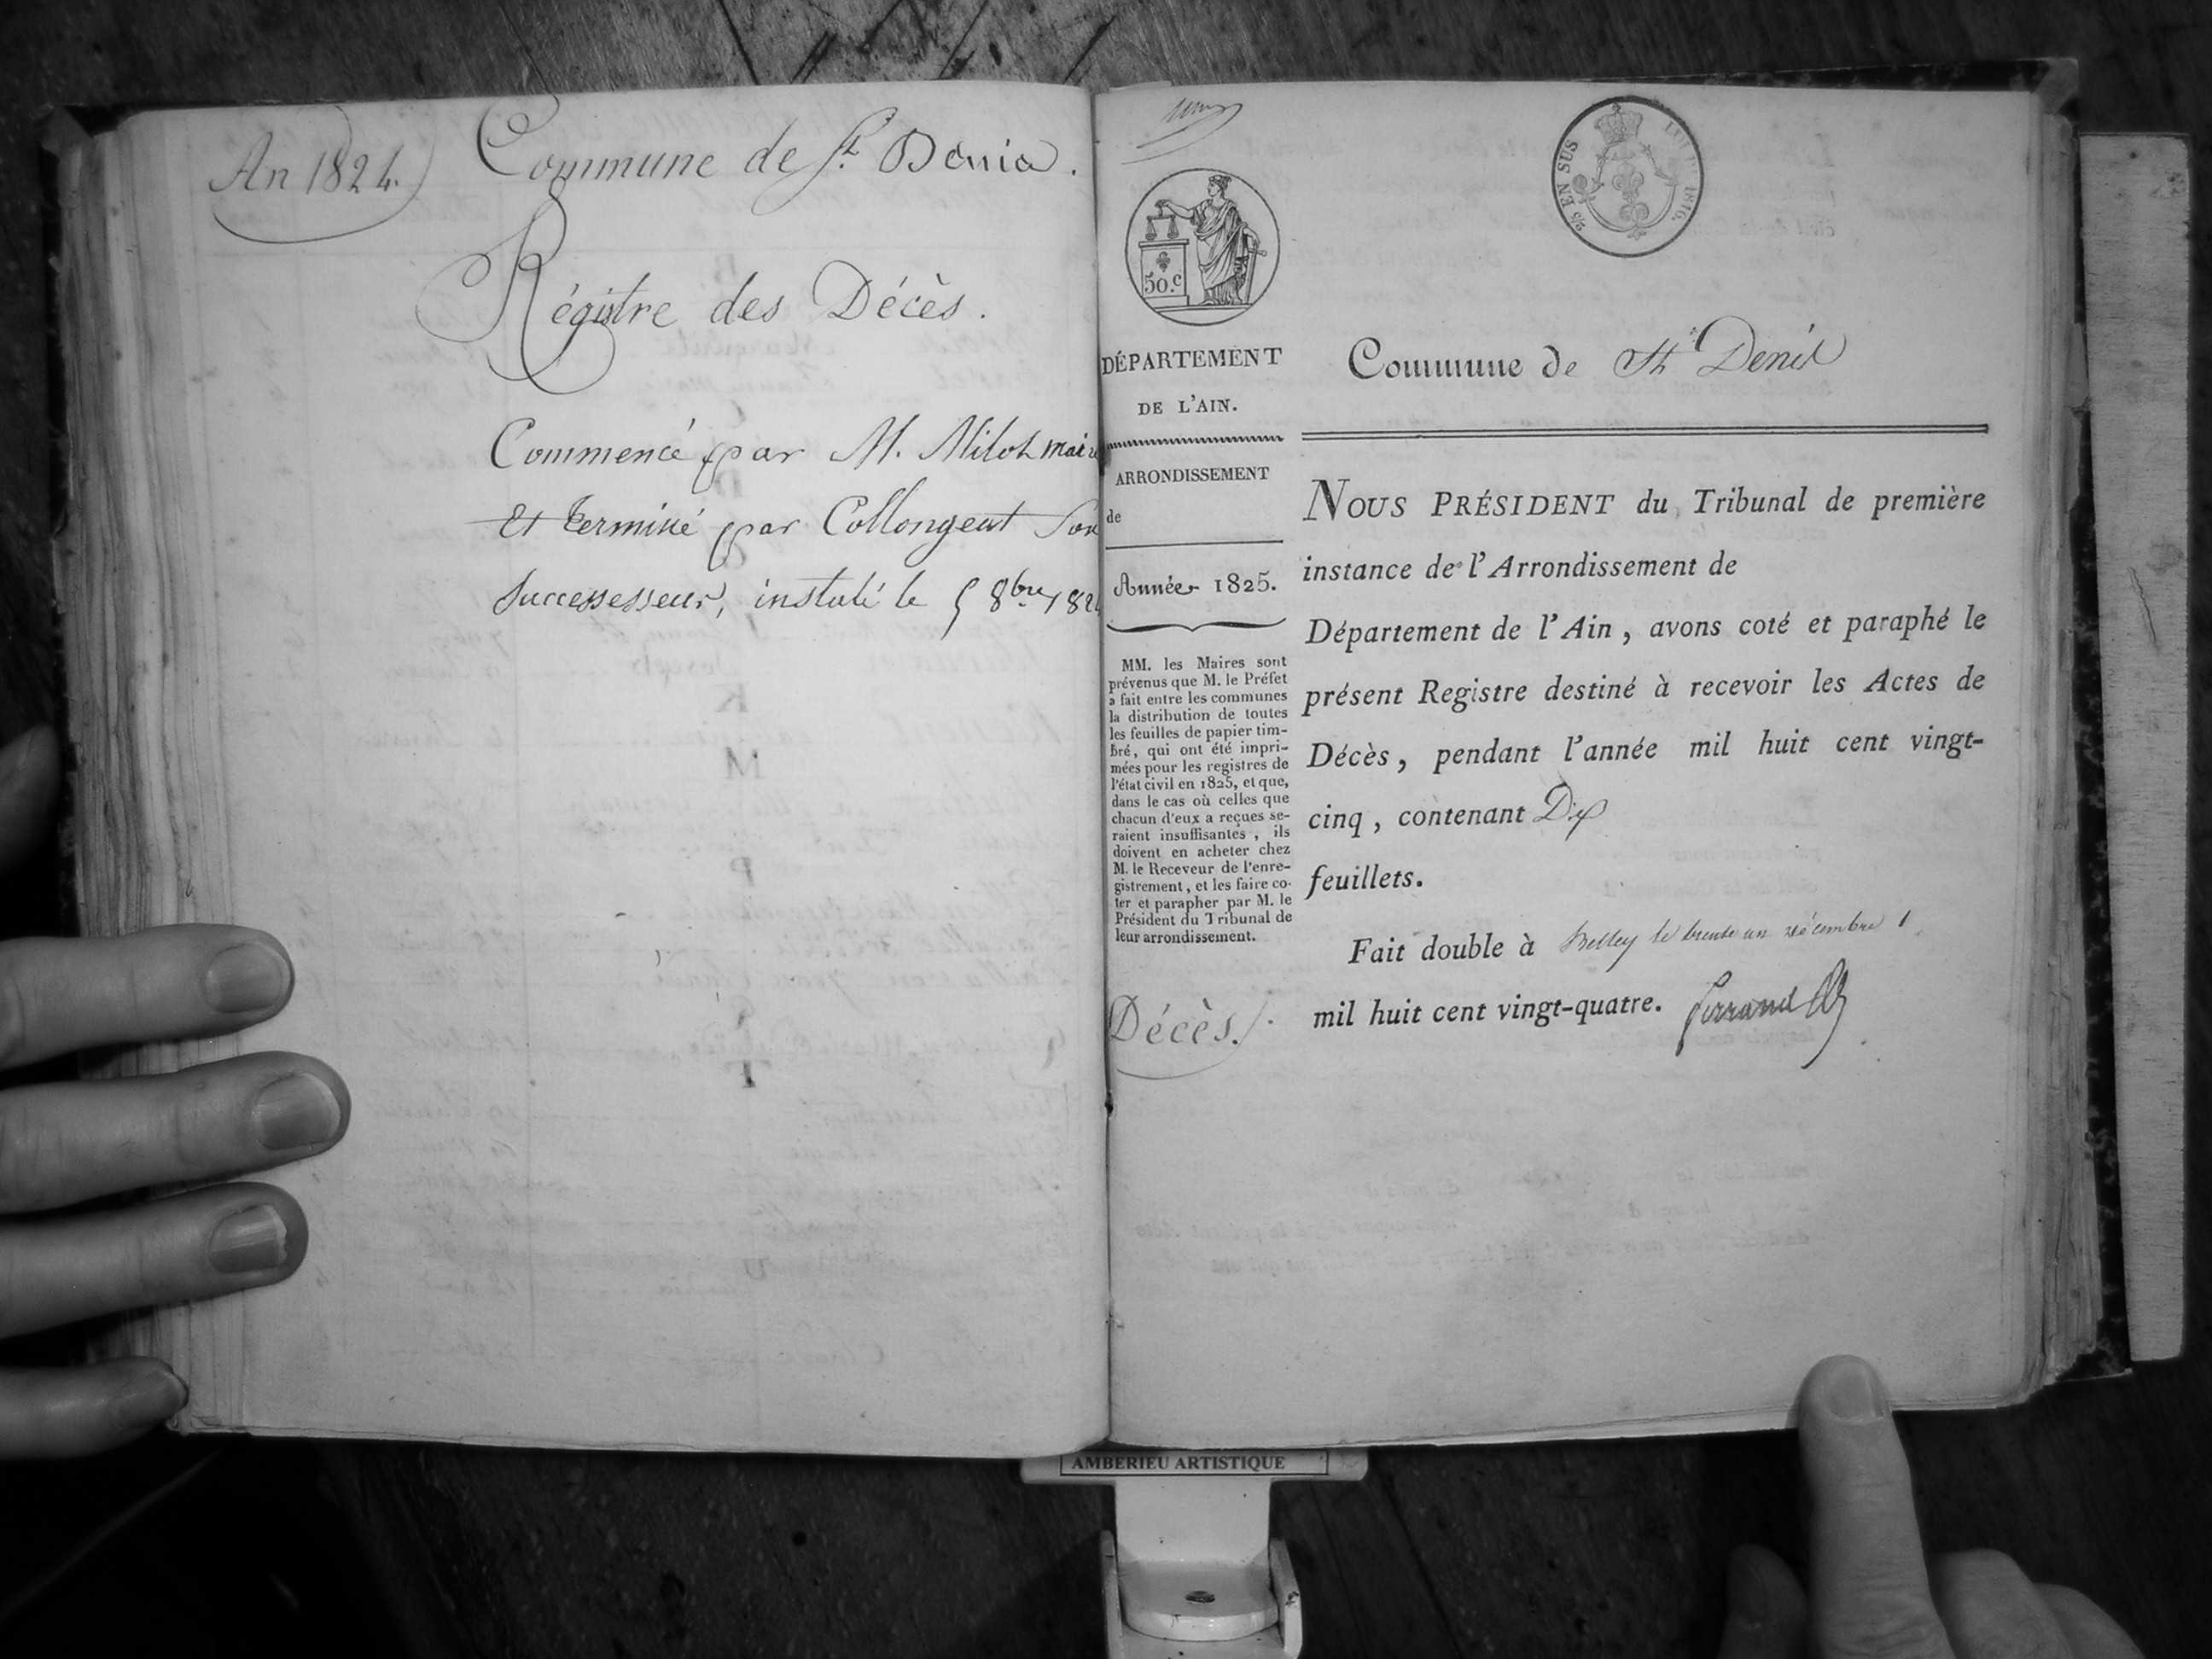 An 1824.
Commune de St. Denis.
Régistre des Décès.
Commencé par M. Milot maire
Et terminé par Collongeat Son
Successesseur, instalé le 5 8bre 182
50.c
2/5 EN SUS
LOI DE 1816.
DÉPARTEMENT
DE L'AIN.
ARRONDISSEMENT
de
Année 1825.
MM. les Maires sont
prévenus que M. le Préfet
a fait entre les communes
la distribution de toutes
les feuilles de papier tim-
bré, qui ont été impri-
mées pour les registres de
l'état civil en 1825, et que,
dans le cas où celles que
chacun d'eux a reçues se-
raient insuffisantes, ils
doivent en acheter chez
M. le Receveur de l'enre-
gistrement, et les faire co-
ter et parapher par M. le
Président du Tribunal de
leur arrondissement.
Décès.
Commune de St Denis
NOUS PRÉSIDENT du Tribunal de première
instance de l'Arrondissement de
Département de l'Ain, avons coté et paraphé le
présent Registre destiné à recevoir les Actes de
Décès, pendant l'année mil huit cent vingt-
cinq, contenant Dix
feuillets.
Fait double à Belley le trente un décembre
mil huit cent vingt-quatre.
AMBERIEU ARTISTIQUE